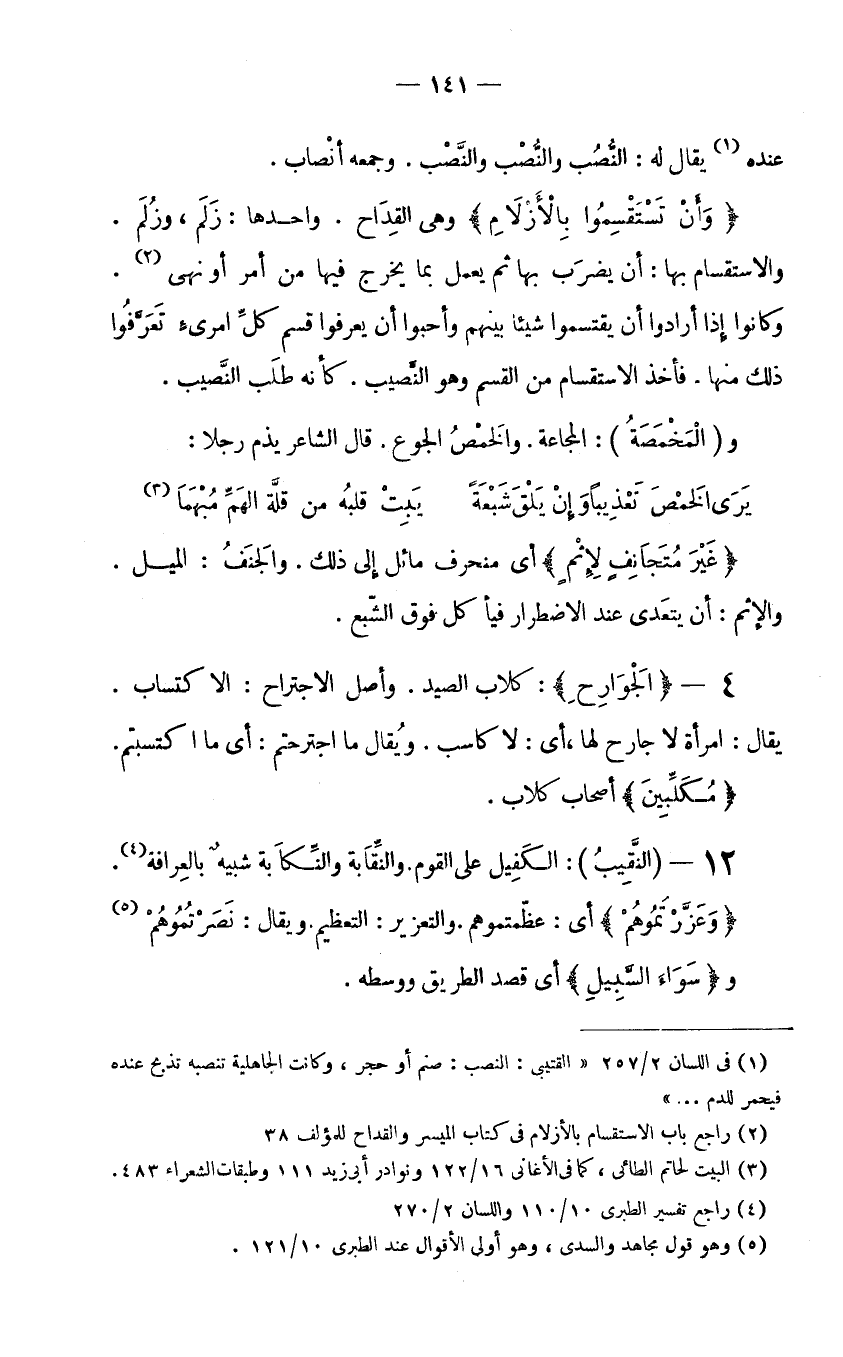 — ١٤١ —
عنده (١) يقال له : النُّصُب والنُّصْب والنَّصْب . وجمعه أنْصاب .
﴿ وَأَنْ تَسْتَقْسِمُوا بِالْأَزْلَامِ ﴾ وهى القِدَاح . واحـدها : زَلَم ، وزُلَم .
والاستقسام بها : أن يضرَب بها ثم يعمل بما يخرج فيها من أمر أو نهى (٢) .
وكانوا إذا أرادوا أن يقتسموا شيئا بينهم وأحبوا أن يعرفوا قسم كلِّ امرىء تَعَرَّفُوا
ذلك منها . فأخذ الاستقسام من القسم وهو النَّصيب . كأنه طلَب النَّصيب .
و ( الْمَخْمَصَةُ ) : المجاعة . والخَمْصُ الجوع . قال الشاعر يذم رجلا :
يَرَى الخَمْصَ تَعْذِيباً وَإِنْ يَلْقَ شَبْعَةً يَبِتْ قلبُه من قلَّة الهَمِّ مُبْهَمَا (٣)
﴿ غَيْرَ مُتَجَانِفٍ لِإِثْمٍ ﴾ أى منحرف مائل إلى ذلك . والجَنَفُ : الميـل .
والإثم : أن يتعَدى عند الاضطرار فيأكل فوق الشّبع .
٤ — ﴿ الْجَوَارِحِ ﴾ : كلاب الصيد . وأصل الاجتراح : الاكتساب .
يقال : امرأة لا جارح لها ، أى : لا كاسب . ويُقال ما اجترحتم : أى ما اكتسبتم .
﴿ مُـكَلِّبِينَ ﴾ أصحاب كلاب .
١٢ — (النَّقِيبُ ) : الـكَفِيل على القوم . والنِّقابة والنِّـكابة شبيهٌ بالعِرافة (٤) .
﴿ وَعَزَّرْتُمُوهُمْ ﴾ أى : عظّمتموهم . والتعزير : التعظيم . ويقال : نَصَرْتُمُوهُمْ (٥)
و ﴿ سَوَاءَ السَّبِيلِ ﴾ أى قصد الطريق ووسطه .
(١) فى اللسان ٢/٢٥٧ « القتيبى : النصب : صنم أو حجر ، وكانت الجاهلية تنصبه تذبح عنده
فيحمر للدم ... »
(٢) راجع باب الاستقسام بالأزلام فى كتاب الميسر والقداح للمؤلف ٣٨
(٣) البيت لحاتم الطائى ، كما فى الأغانى ١٦/١٢٢ ونوادر أبى زيد ١١١ وطبقات الشعراء ٤٨٣ .
(٤) راجع تفسير الطبرى ١٠/١١٠ واللسان ٢/٢٧٠
(٥) وهو قول مجاهد والسدى ، وهو أولى الأقوال عند الطبرى ١٠/١٢١ .